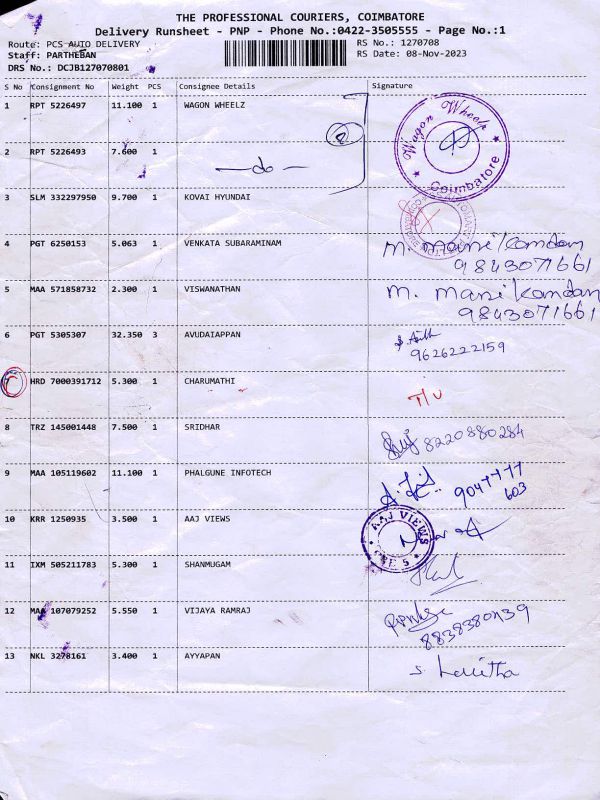 THE PROFESSIONAL COURIERS, COIMBATORE
Delivery Runsheet - PNP - Phone No.:0422-3505555 - Page No.:1
Route: PCS AUTO DELIVERY RS No.: 1270708
Staff: PARTHEBAN RS Date: 08-Nov-2023
DRS No.: DCJB127070801
S No Consignment No Weight PCS Consignee Details Signature
1 RPT 5226497 11.100 1 WAGON WHEELZ Wagon Wheelz Coimbatore
2 RPT 5226493 7.600 1 —do— 2
3 SLM 332297950 9.700 1 KOVAI HYUNDAI
4 PGT 6250153 5.063 1 VENKATA SUBARAMINAM M. Manikandan
9843071661
5 MAA 571858732 2.300 1 VISWANATHAN M. Manikandan
9843071661
6 PGT 5305307 32.350 3 AVUDAIAPPAN
9626222159
7 HRD 7000391712 5.300 1 CHARUMATHI
8 TRZ 145001448 7.500 1 SRIDHAR 8220880284
9 MAA 105119602 11.100 1 PHALGUNE INFOTECH
603
10 KRR 1250935 3.500 1 AAJ VIEWS AAJ VIEWS
11 IXM 505211783 5.300 1 SHANMUGAM
12 MAA 107079252 5.550 1 VIJAYA RAMRAJ
13 NKL 3278161 3.400 1 AYYAPAN